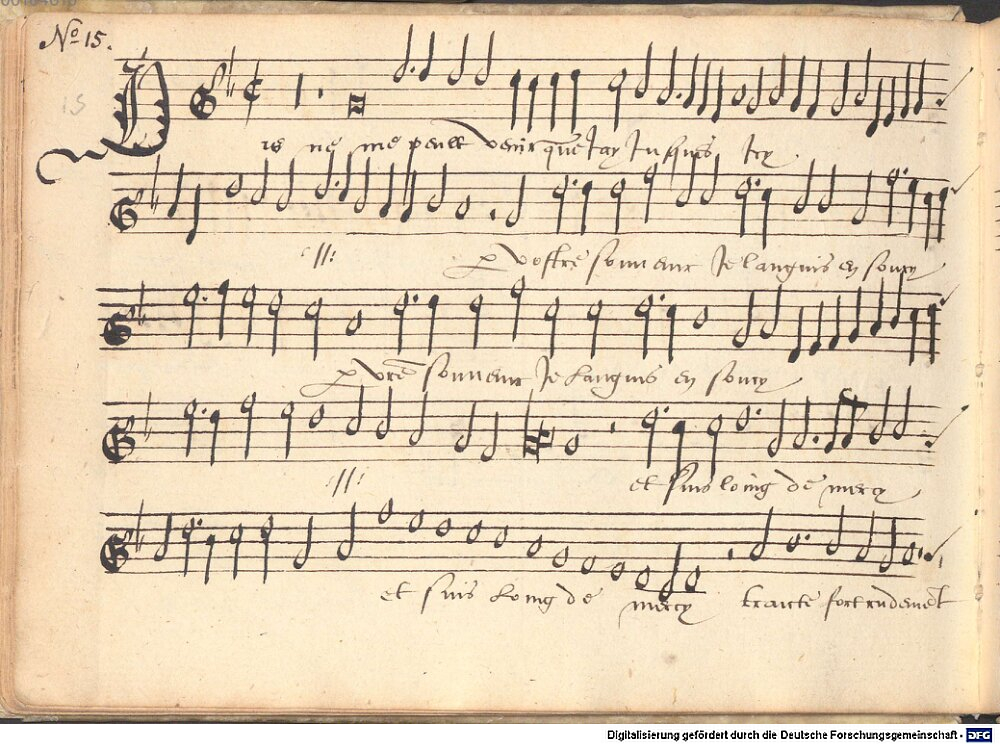 No 15.
15
Pis ne me peult venir que Jay Jusques Icy
://:
p vostre souvenir Je languis en soucy
p vre souvenir Je languis en soucy
://: et suis loing de mercy
et suis loing de mercy traicte fort rudement
Digitalisierung gefördert durch die Deutsche Forschungsgemeinschaft - DFG